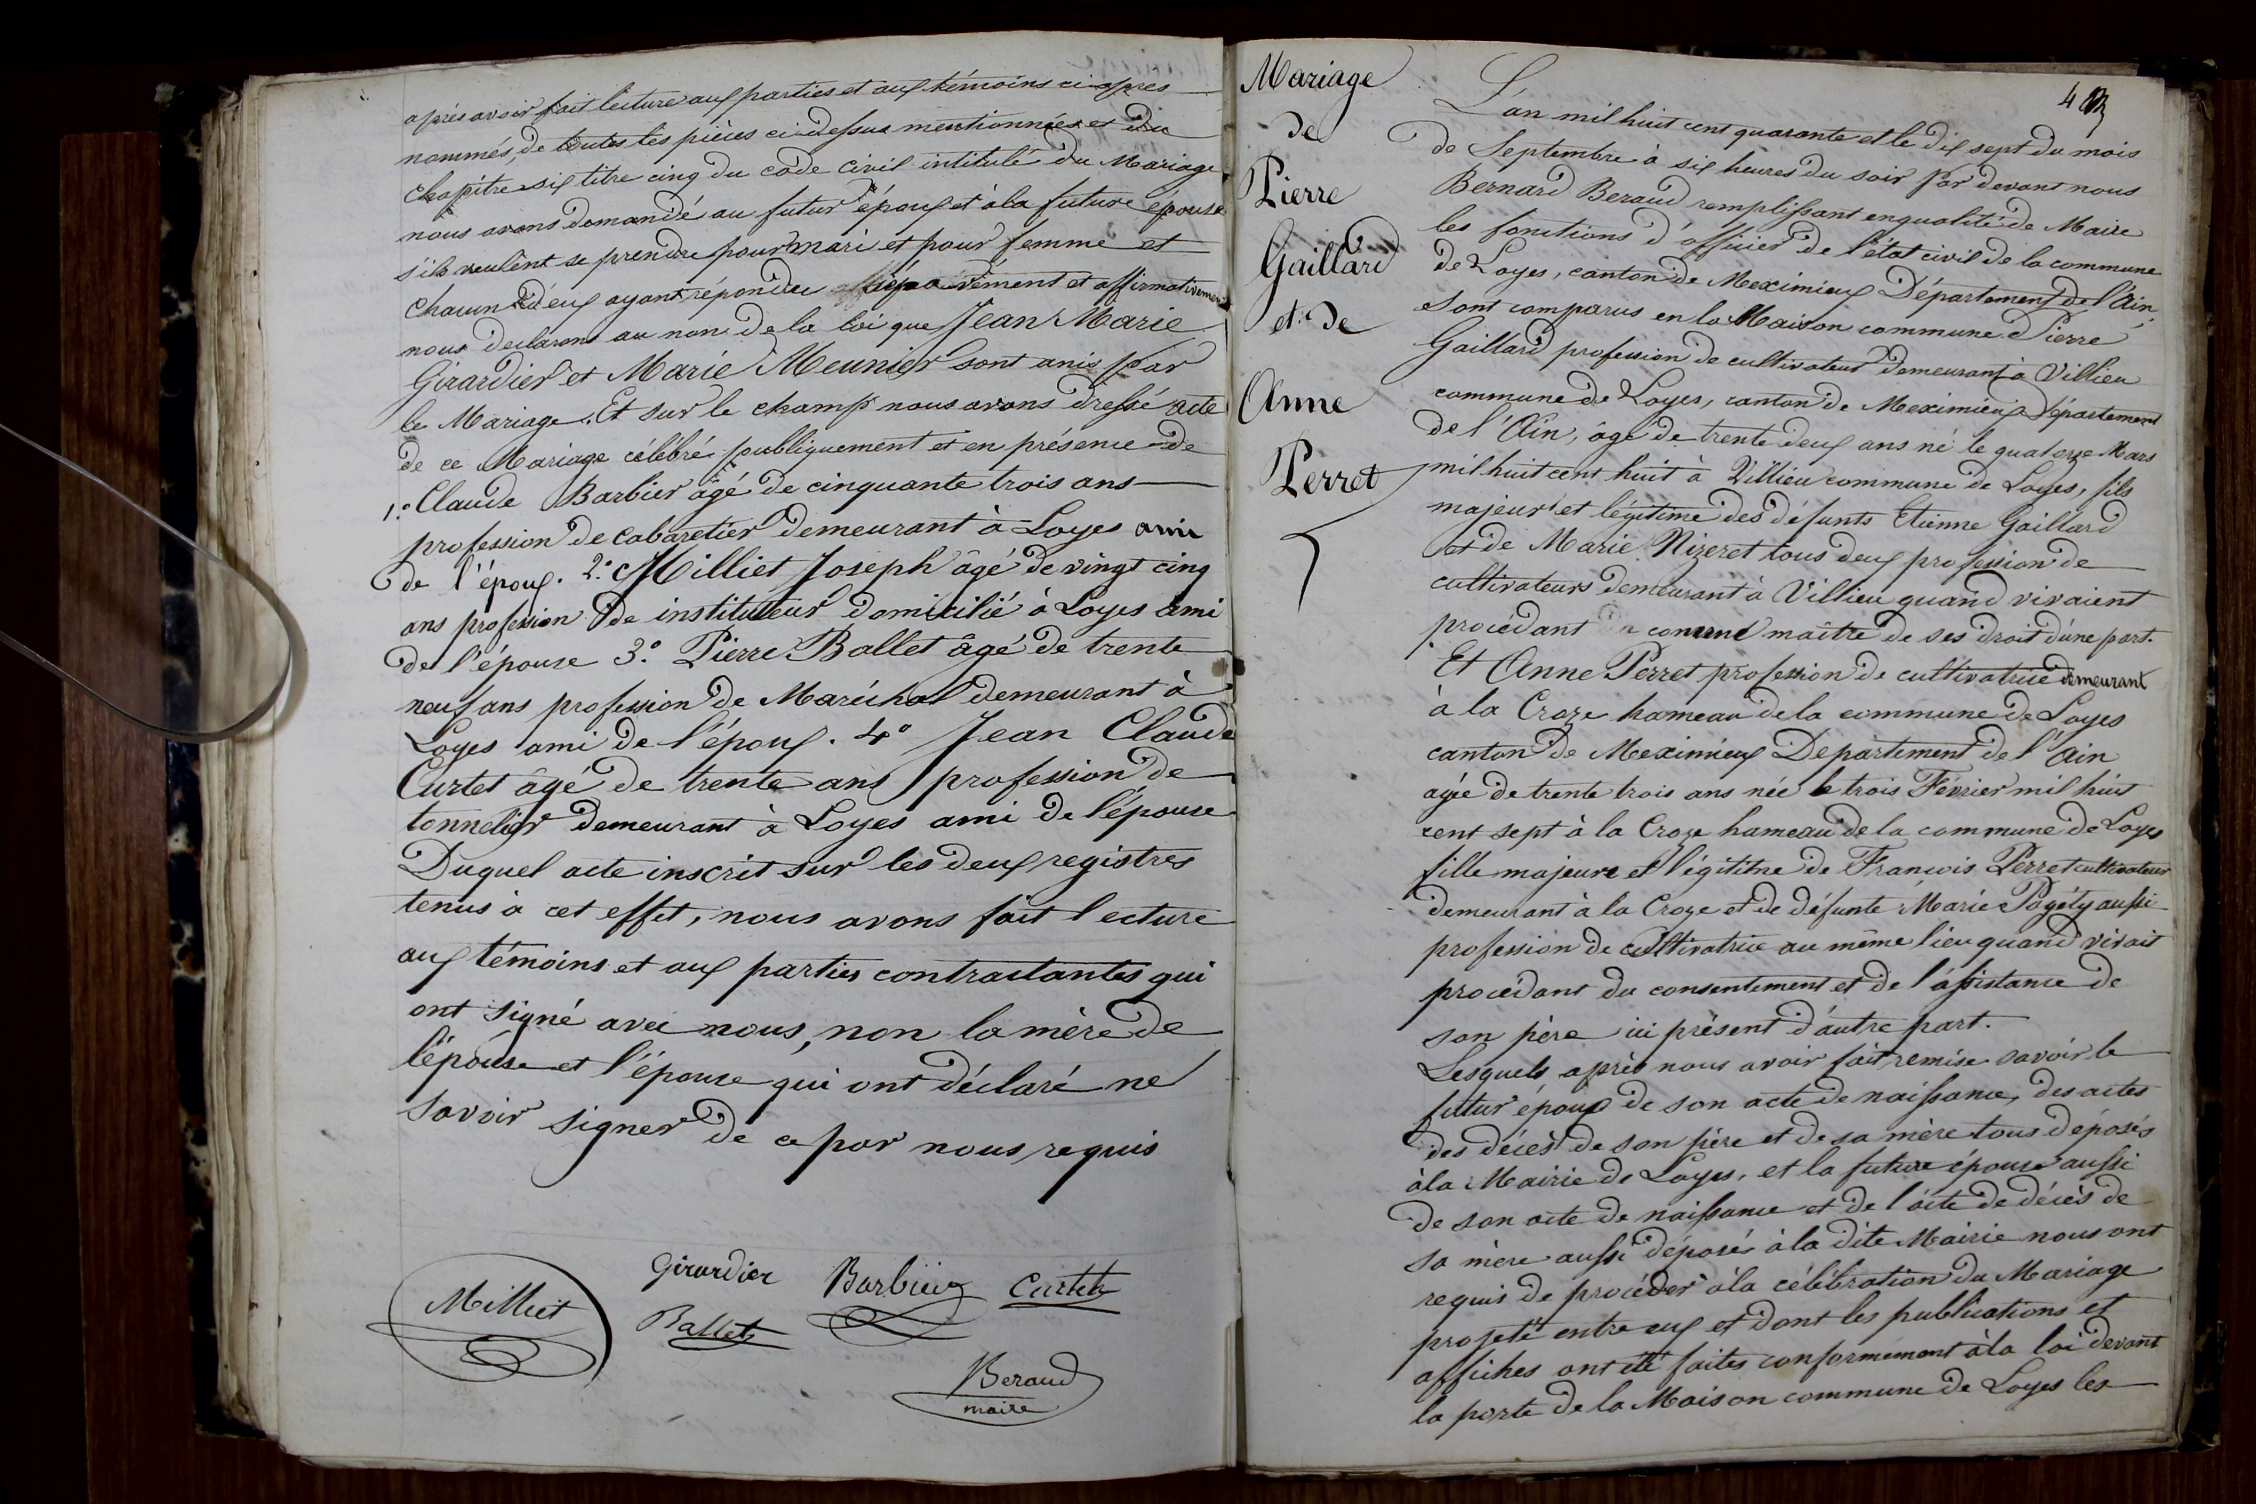 après avoir fait lecture aux parties et aux témoins ci après
nommés, de toutes les pièces ci dessus mentionnées et du
chapitre six titre cinq du code civil intitulé du Mariage
nous avons demandé au futur époux et à la future épouse
s'ils veulent se prendre pour mari et pour femme et
chacun d'eux ayant répondu séparément et affirmativement
nous declarons au nom de la loi que Jean Marie
Girardier et Marie Meunier sont unis par
le Mariage. Et sur le champ nous avons dressé acte
de ce Mariage célébré publiquement et en présence de
1.º Claude Barbier âgé de cinquante trois ans
profession de cabaretier demeurant à Loyes ami
de l'époux. 2.º Milliet Joseph âgé de vingt cinq
ans profession de instituteur domicilié à Loyes ami
de l'épouse 3.º Pierre Ballet âgé de trente
neuf ans profession de Maréchal demeurant à
Loyes ami de l'époux. 4º Jean Claude
Curtet âgé de trente ans profession de
tonnelier demeurant à Loyes ami de l'épouse
Duquel acte inscrit sur les deux registres
tenus à cet effet, nous avons fait lecture
aux témoins et aux parties contractantes qui
ont signé avec nous, non la mère de
l'épouse et l'épouse qui ont déclaré ne
savoir signer de ce par nous requis
Milliet Girardier Barbier Curtet
Ballet
Beraud
maire
Mariage
de
Pierre
Gaillard
et de
Anne
Perret
4
L'an mil huit cent quarante et le dix sept du mois
de Septembre à six heures du soir Par devant nous
Bernard Beraud remplissant en qualité de Maire
les fonctions d'officier de l'état civil de la commune
de Loyes, canton de Meximieux Département de l'Ain,
sont comparus en la Maison commune Pierre
Gaillard profession de cultivateur demeurant à Villieu
commune de Loyes, canton de Meximieux Département
de l'Ain, âgé de trente deux ans né le quatorze Mars
mil huit cent huit à Villieu commune de Loyes, fils
majeur et légitime des défunts Etienne Gaillard
et de Marie Nizeret tous deux profession de
cultivateurs demeurant à Villieu quand vivaient
procédant comme maître de ses droit d'une part.
Et Anne Perret profession de cultivatrice demeurant
à la Croze hameau de la commune de Loyes
canton de Meximieux Département de l'Ain
agée de trente trois ans née le trois Février mil huit
cent sept à la Croze hameau de la commune de Loyes
fille majeure et légitime de François Perret cultivateur
demeurant à la Croze et de défunte Marie Pagéty aussi
profession de cultivatrice au même lieu quand vivait
procédant du consentement et de l'assistance de
son père ici présent d'autre part.
Lesquels après nous avoir fait remise savoir le
futur époux de son acte de naissance, des actes
des décès de son père et de sa mère tous déposés
à la Mairie de Loyes, et la future épouse aussi
de son acte de naissance et de l'acte de décès de
sa mère aussi déposés à la dite Mairie nous ont
requis de procéder à la célébration du Mariage
projeté entre eux et dont les publications et
affiches ont été faites conformément à la loi devant
la porte de la Maison commune de Loyes les